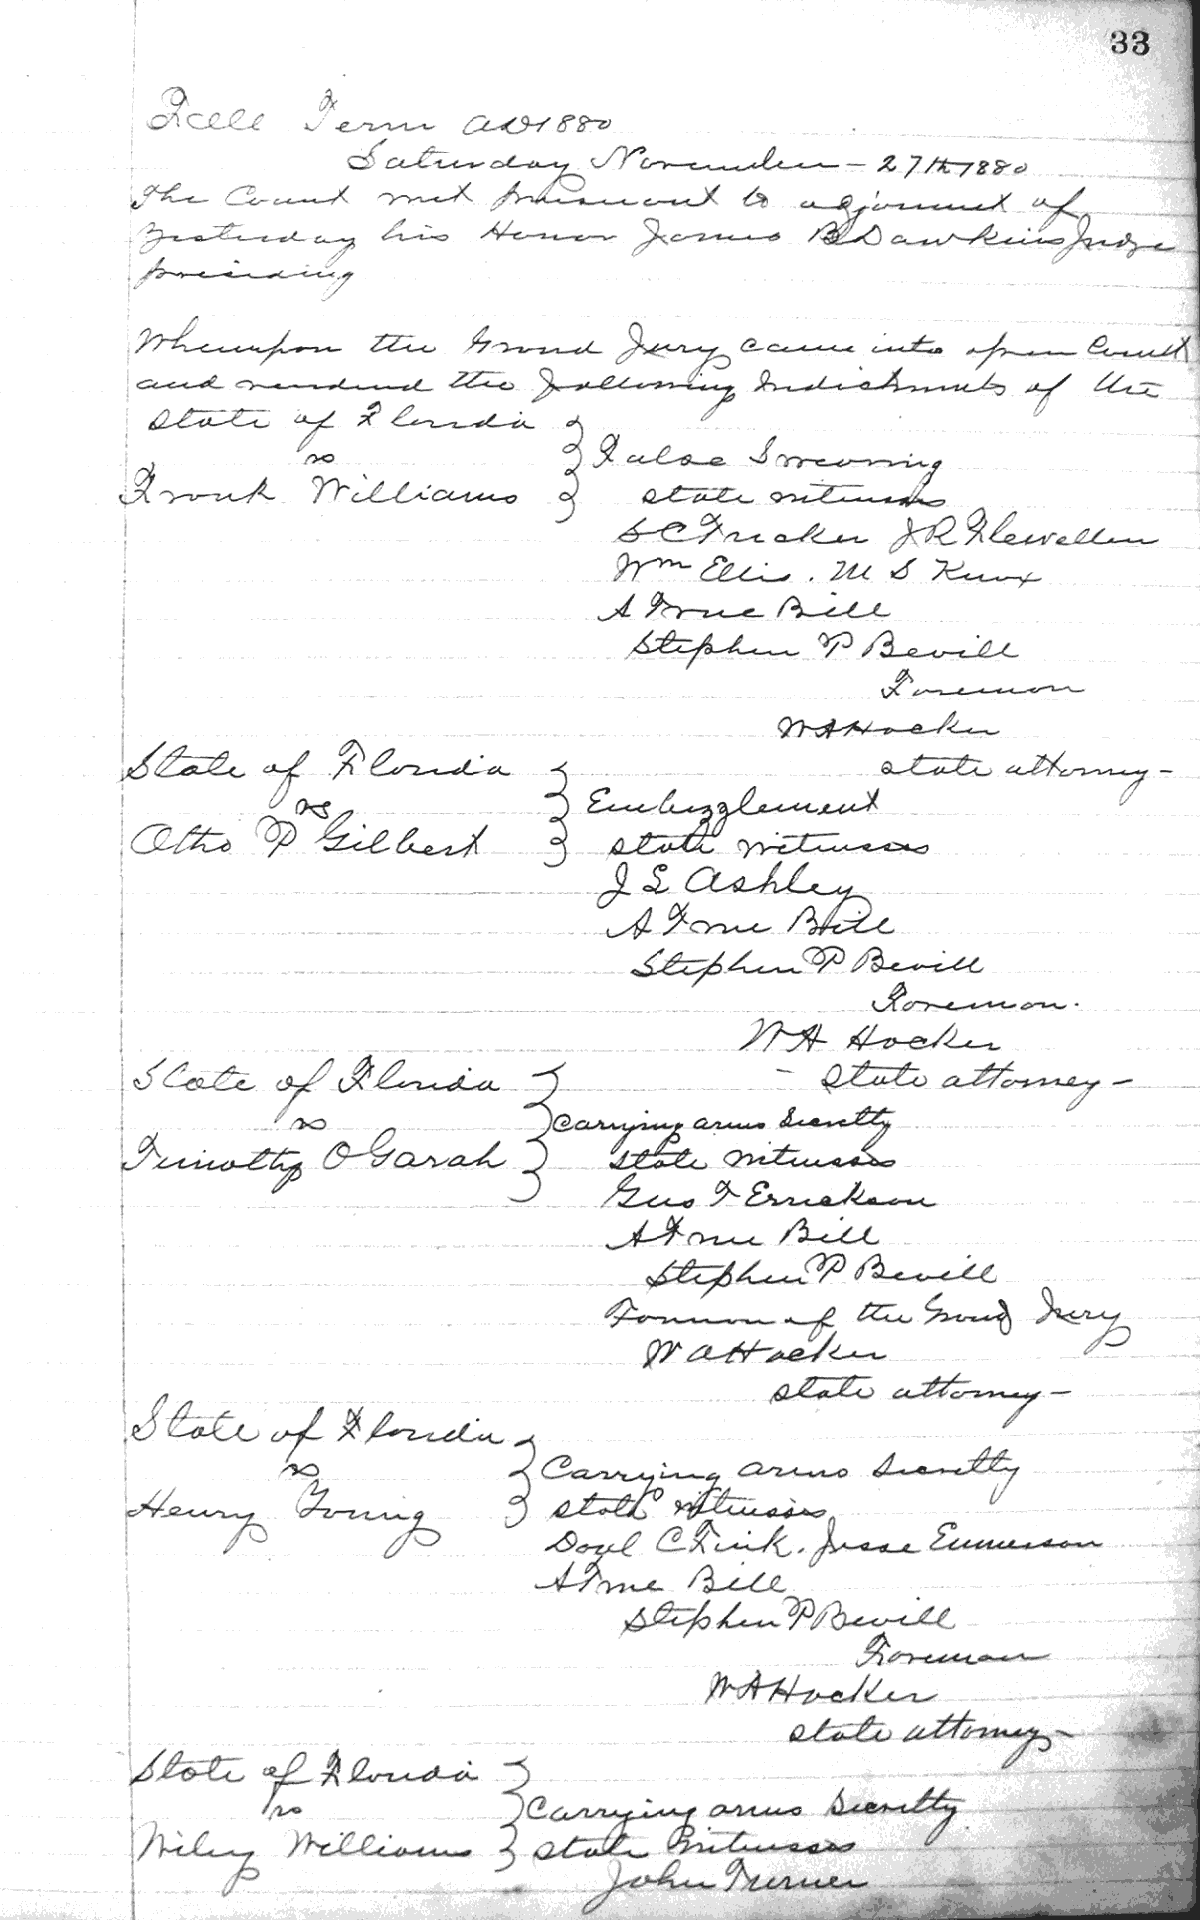 33
Fall Term AD 1880
Saturday November - 27th 1880
The Court met pursuant to adjournet of
Yesterday his Honor James B Dawkins Judge
presiding
Whereupon the Grand Jury came into open Court
and rendered the following Indictments of the
State of Florida
vs
False Swearing
Frank Williams
state witnesses
S C Tucker J R Flewellen
Wm Ellis. M S Knox
A True Bill
Stephen P Bevill
Foreman
W A Hocker
state attorney -
State of Florida
vs
Embezzlement
Otho P Gilbert
state witnesses
J L Ashley
A True Bill
Stephen P Bevill
Foreman.
W A Hocker
- state attorney -
State of Florida
vs
Carrying arms Secretly
Timothy O Garah
state witnesses
Gus F Errickson
A True Bill
Stephen P Bevill
Foreman of the Grand Jury
W A Hocker
state attorney -
State of Florida
vs
Carrying arms Secretly
Henry Young
state witnesses
C Fink. Jesse Emmerson
A True Bill
Stephen P Bevill
Foreman
W A Hocker
state attorney -
State of Florida
vs
Carrying arms Secretly
Wiley Williams
state witnesses
John Turner